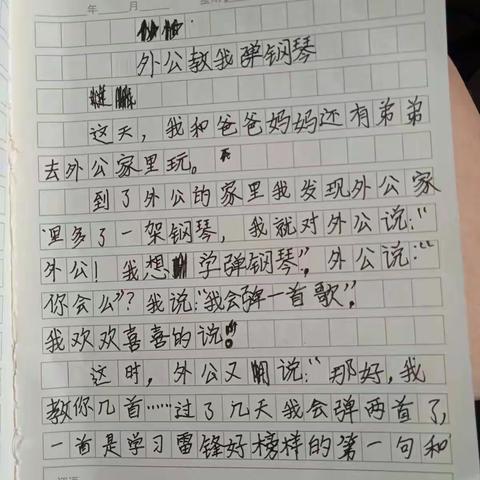 年 月
外公教我弹钢琴
这天，我和爸爸妈妈还有弟弟
去外公家里玩。
到了外公的家里我发现外公家
里多了一架钢琴，我就对外公说：“
外公！我想学弹钢琴”，外公说：“
你会么”？我说：“我会弹一首歌”，
我欢欢喜喜的说！
这时，外公又说：“那好，我
教你几首……过了几天我会弹两首了，
一首是学习雷锋好榜样的第一句和